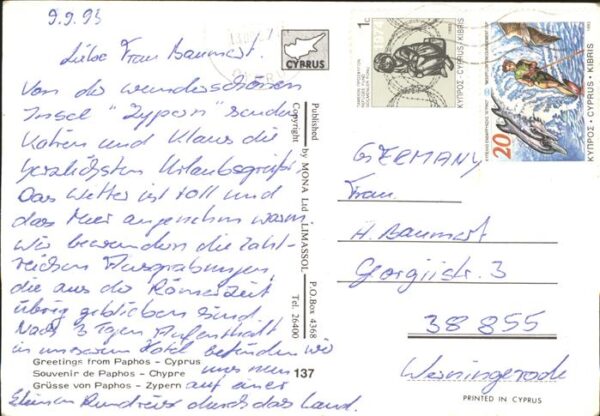 9.9.93
Liebe Frau Baumert.
Von der wunderschönen
Insel "Zypern" senden
Katrin und Klaus die
herzlichsten Urlaubsgrüße.
Das Wetter ist toll und
das Meer angenehm warm.
Wir bewundern die zahl-
reichen Ausgrabungen,
die aus der Römerzeit
übrig geblieben sind.
Nach 3 Tagen Aufenthalt
in unserem Hotel befinden wir
uns nun
auf einer
kleinen Rundreise durch das Land.
Greetings from Paphos - Cyprus
Souvenir de Paphos - Chypre
Grüsse von Paphos - Zypern
137
CYPRUS
Published by MONA Ltd LIMASSOL P.O.Box 4368
Copyright
Tel. 26400
1c
1974
ΚΥΠΡΟΣ·CYPRUS/KIBRIS
20c
ΚΥΠΡΟΣ · CYPRUS · KIBRIS
1993
GERMANY
Frau
H. Baumert
Georgiistr. 3
38855
Wernigerode
PRINTED IN CYPRUS